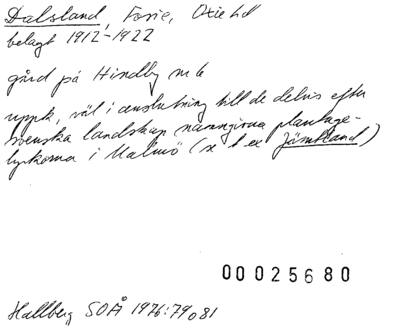 Dalsland, Fosie, Oxie hd
belagt 1912-1922
gård på Hindby nr 6
uppk. väl i anslutning till de delvis efter
svenska landskap namngivna plantage-
lyckorna i Malmö (se t ex Jämtland)
00025680
Hallberg SOÅ 1976:79 o 81